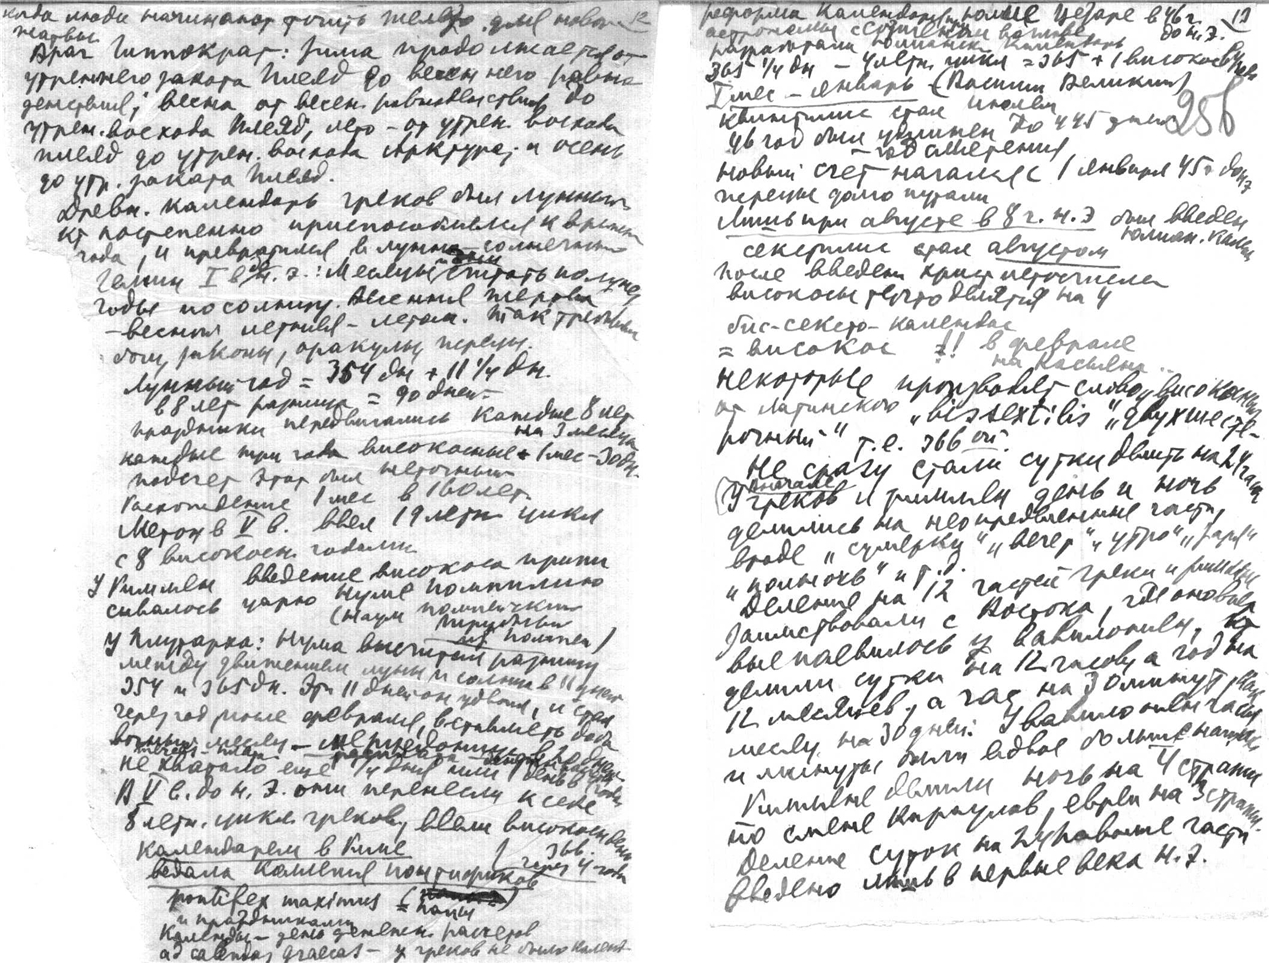 когда люди начинают точить железо для новой 12
жатвы
Врач Гиппократ: зима продолжается от
утреннего заката Плеяд до весеннего равно
денствия; весна от весен. равноденствия до
утрен. восхода Плеяд, лето – от утрен. восхода
плеяд до утрен. восхода Арктура; и осень
до утр. заката Плеяд.
Древн. календарь греков был лунным
кт постепенно приспособился к временам
года, и превратился в лунно-солнечный
I в н. э.: месяцы считать по луне,
годы по солнцу. Весенние жертвы
– весной летние – летом. Так требовали
боги, законы, оракулы
Лунный год = 354 дн + 11 1/4 дн.
в 8 лет разница = 90 дней
праздники передвигались каждые 8 лет
на 3 месяца
каждые три года високосные + 1 мес – 30 дн.
подсчет этот был неточным
Расхождение 1 мес в 160 лет
Метон в V в. ввел 19 летн цикл
с 8 високосн. годами
У Римлян введение високоса припи
сывалось царю Нуме Помпилию
У Плутарха: Нума высчитал разницу
между движением луны и солнца в 11 дней
354 и 365 дн. Эти 11 дней он удвоил, и стал
через год после февраля, вставлять доба
вочный месяц – мерцедоний в 22 дня
не хватало еще 1/4 дня или 1 день в 4 года
В V в. до н. э. они перенесли к себе
8 летн. цикл греков, ввели високосн день
366.
через 4 года
Календарем в Риме
ведала Коллегия понтификов
pontifex maximus (= папы)
и праздниками
Календы – день денежн. расчетов
ad calendas graecas – у греков не было календ
реформа календаря при Юлие Цезаре в 46 г. 13
до н. э.
разработали юлианск календарь
365 1/4 дн – 4 летн. цикл = 365 + 1 високос
256
I мес – январь (Василий Великий)
квинтилис стал июлем
46 год был удлинен до 445 дней
– год смятения
новый счет начался с 1 января 45 г. до н э
жрецы долго путали
Лишь при августе в 8 г. н. э был введен
юлиан. кален
секстилис стал августом
после введения христ летосчислен
високосы те что делятся на 4
бис-сексто-календас
= високос !! в феврале
на Касьяна..
некоторые производят слово високосный
от латинского „bissextilis“ „двухшесте-
ричный“ т. е. 366 ой
Не сразу стали сутки делить на 24 часа
вначале
(У греков и римлян день и ночь
делились на неопределенные части,
вроде „сумерки“ „вечер“ „утро“ „заря“
„полночь“ и т. д.
Деление на 12 частей греки и римляне
заимствовали с Востока, где оно впер
вые появилось у вавилонян, кт
делили сутки на 12 часов, а год на
12 месяцев, а час на 30 минут, как
месяц на 30 дней. У вавилонян часы
и минуты были вдвое больше наших
Римляне делили ночь на 4 стражи
по смене караулов, евреи на 3 стражи.
Деление суток на 24 равные части
введено лишь в первые века н. э.